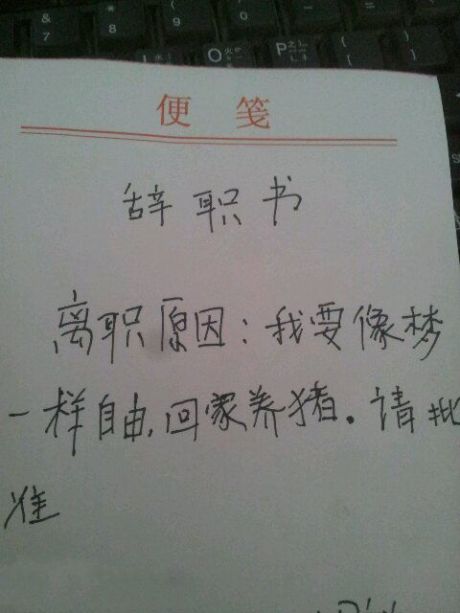 & 7
* 8
( 9
) 0
O 火
P
便 笺
辞职书
离职原因：我要像梦
一样自由,回家养猪。请批
准